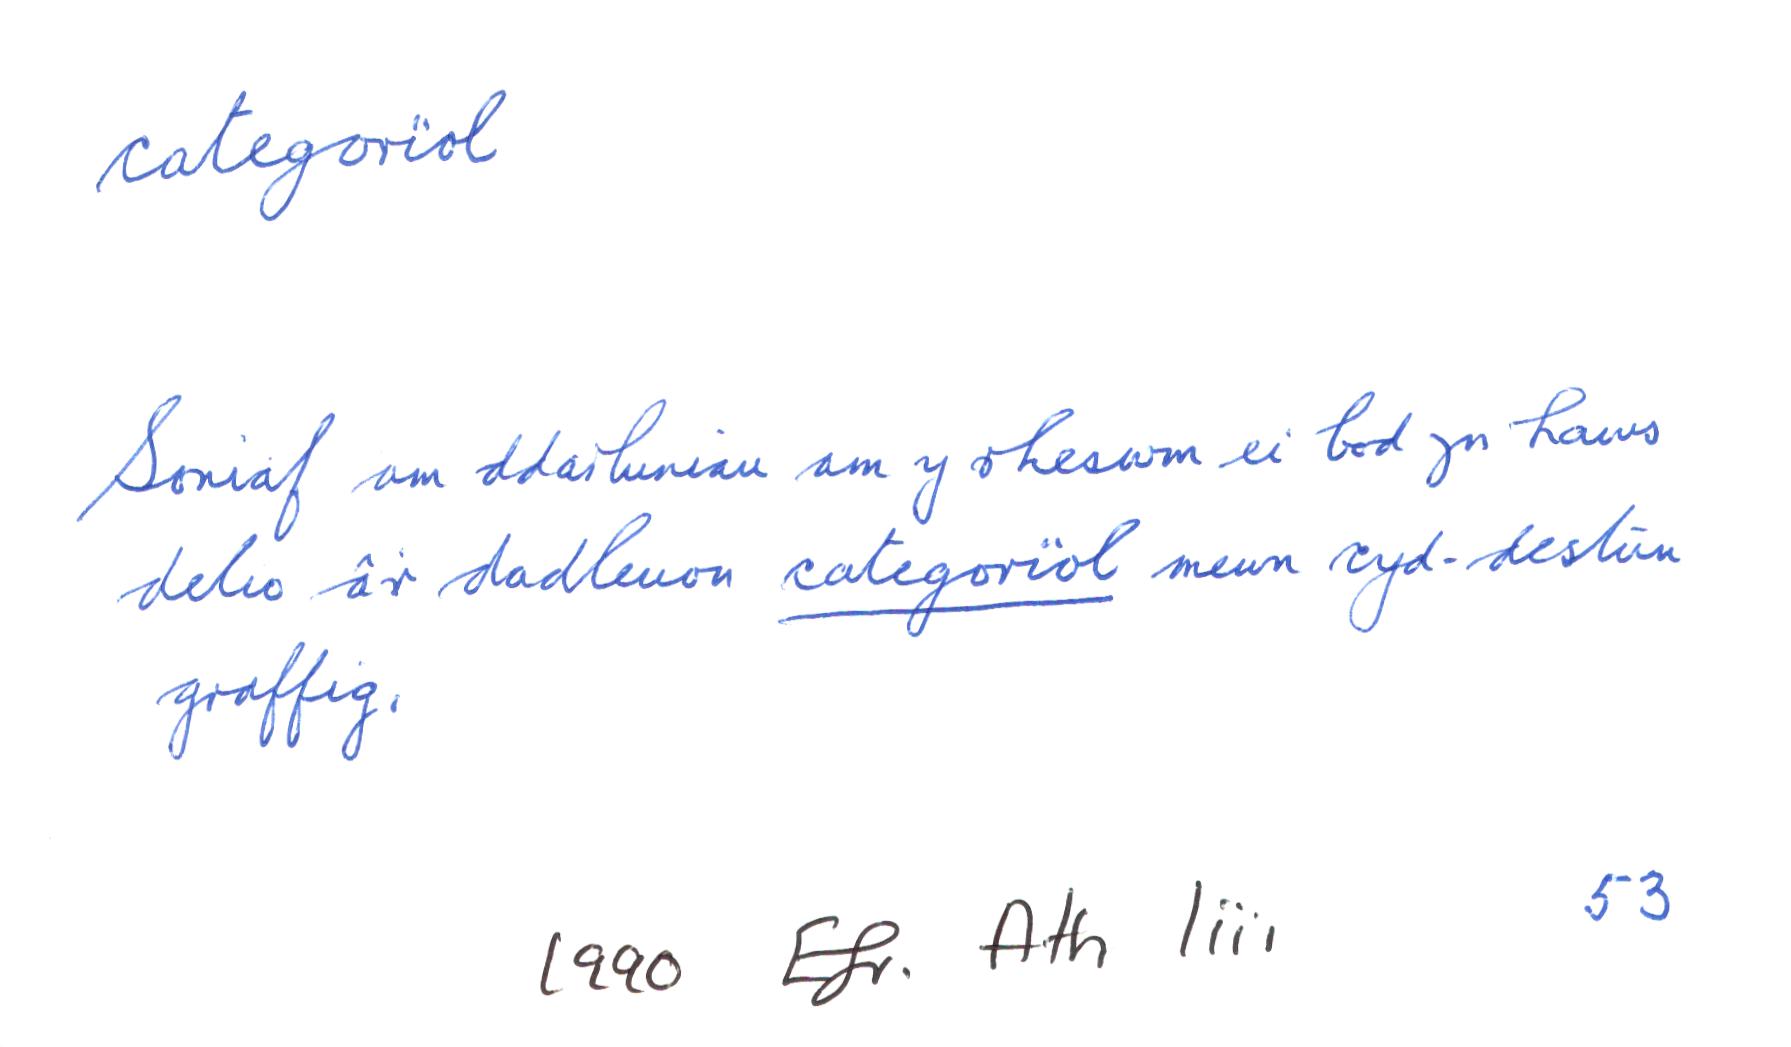 categorïol
Soniaf am ddarluniau am y rheswm ei bod yn haws
delio â'r dadleuon categorïol mewn cyd-destun
graffig.
53
1990 Efr. Ath liii